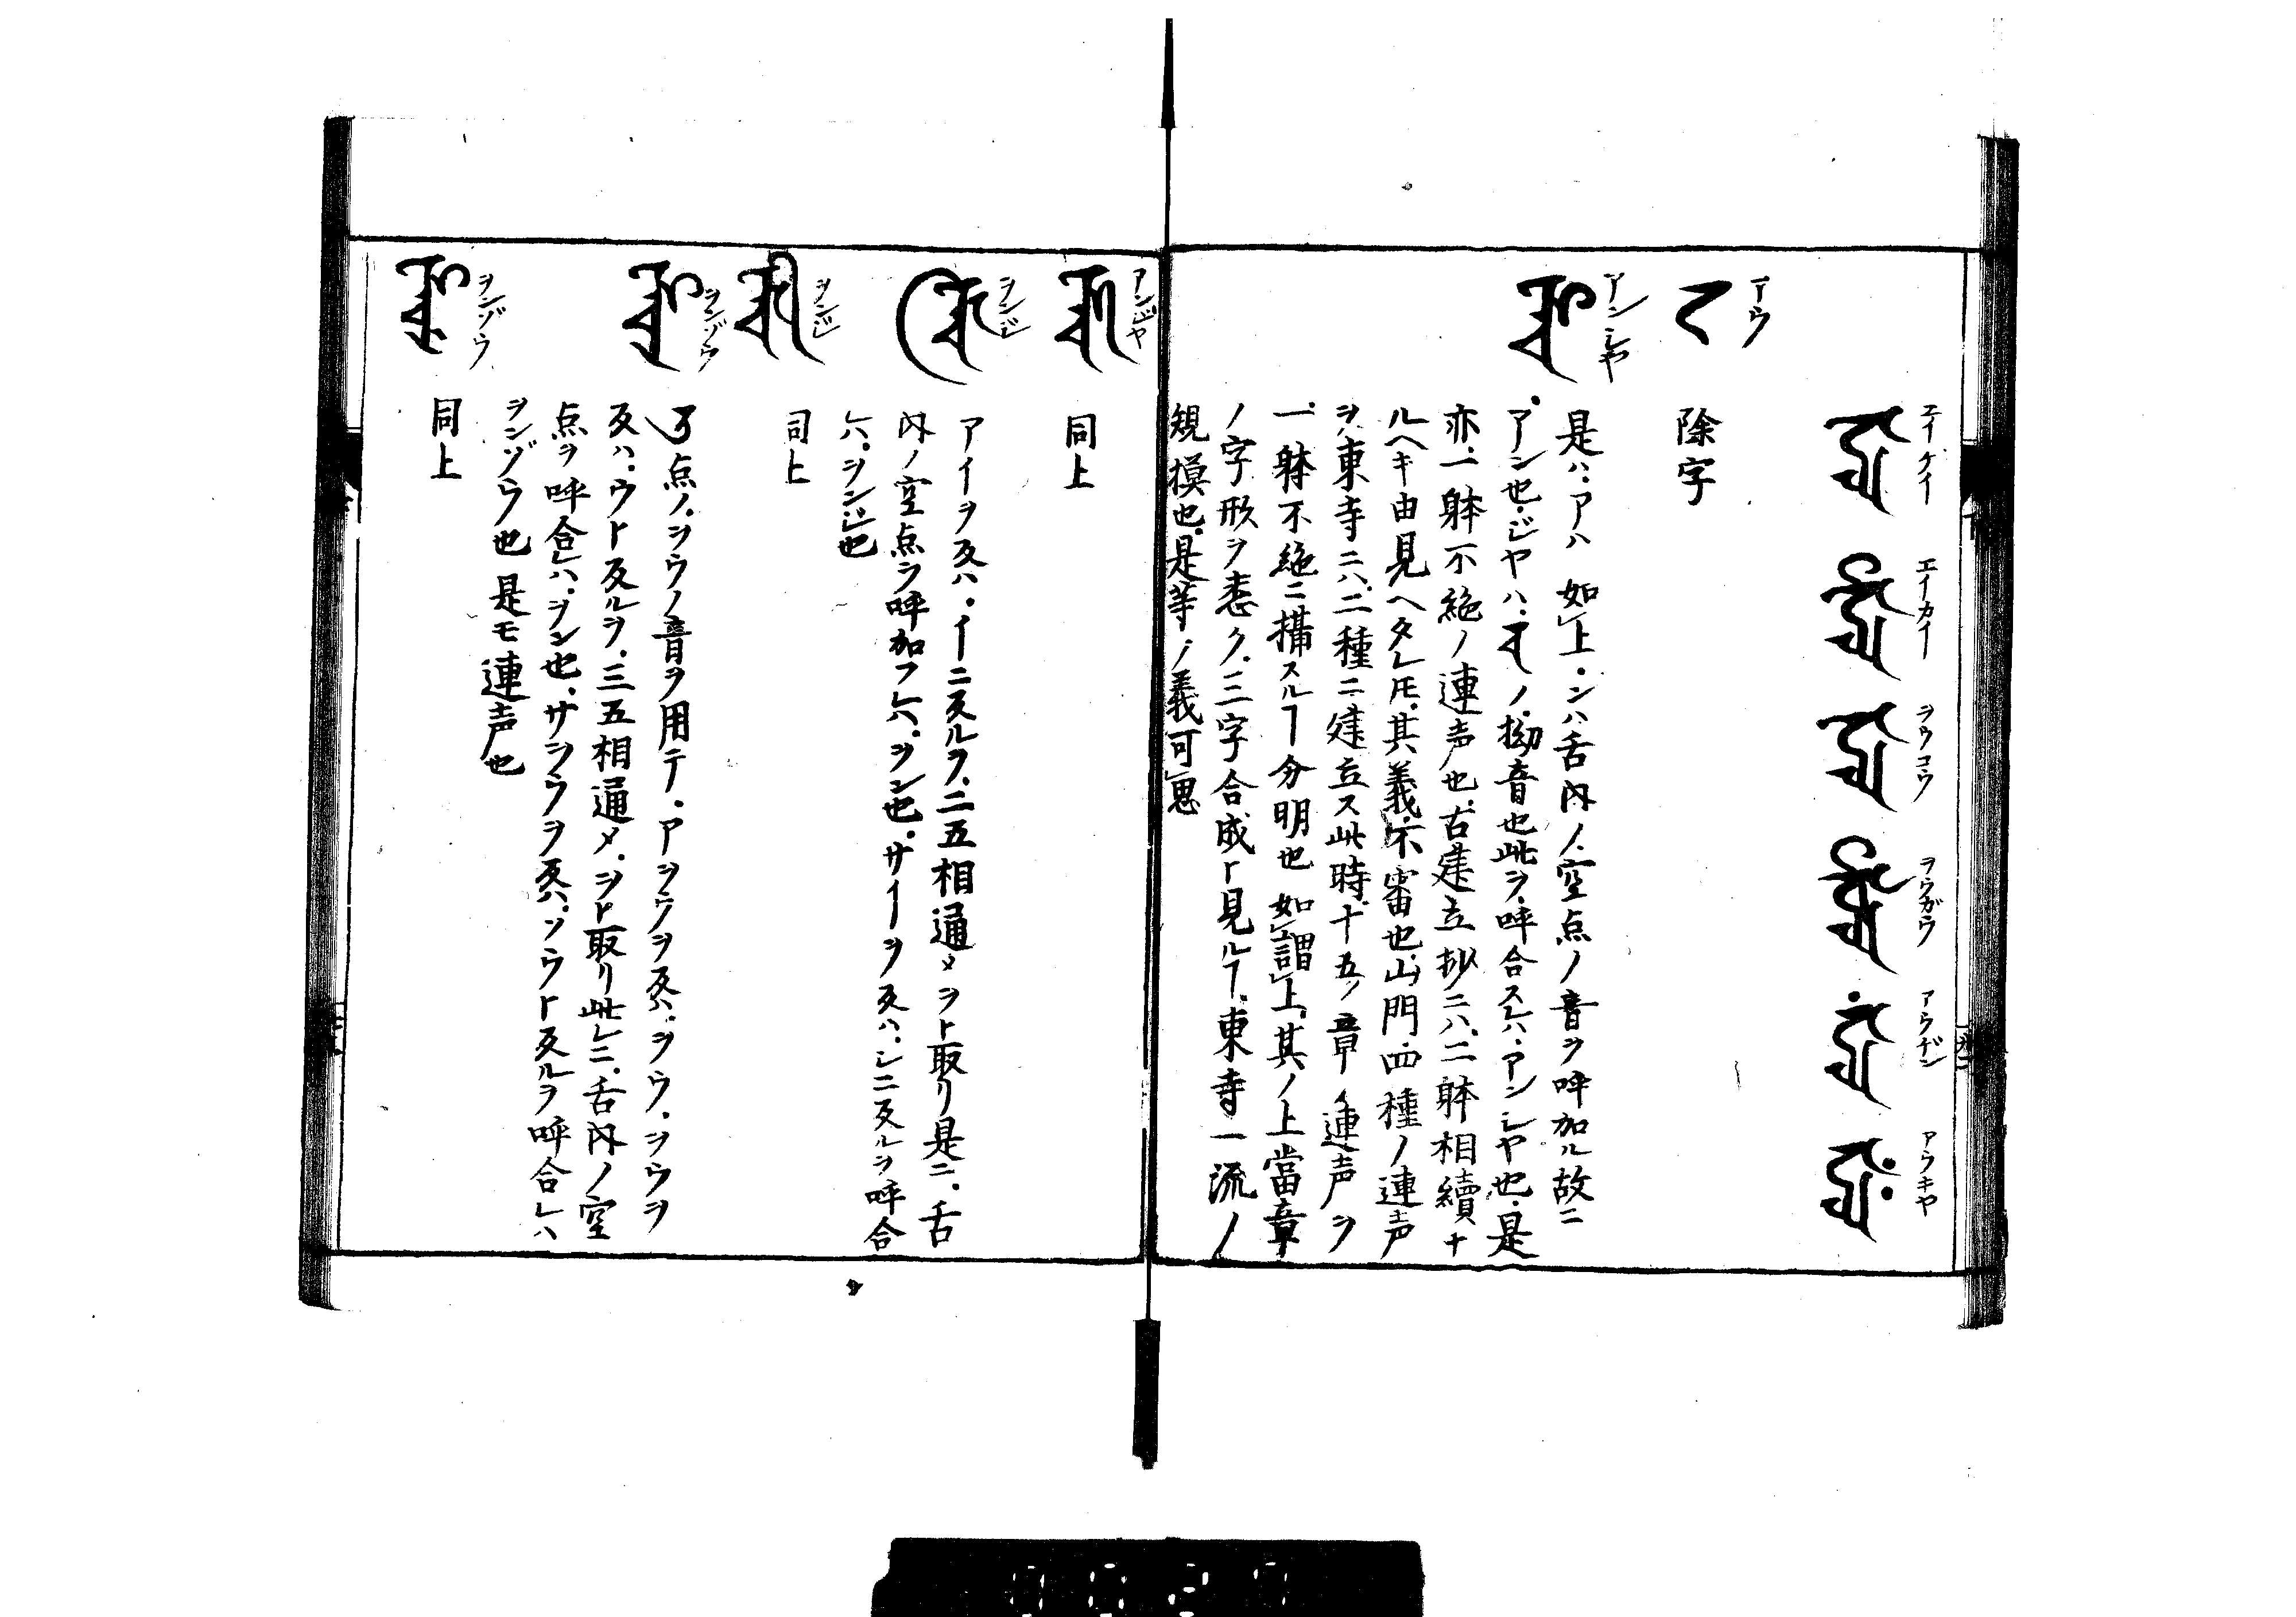 エイケイ
エイカイ
ヲウコウ
ヲウガウ
アウヂン
アウキヤ
アウ
除字
アンシヤ
是ハ、アハ如上、ンハ舌内ノ空点ノ音ヲ呼加ル故ニ
アン也、ジヤハ、ノ、拗音也此ヲ呼合スレハ、アンシヤ也、是
亦、一躰不絶ノ連声也、古建立抄ニハ、二躰相續ナ
ルヘキ由見ヘタレ𪜈、其義、不審也、山門、四種ノ連声
ヲ、東寺ニハ、二種ニ建立ス此時、十五ノ章ノ連声ヲ
一躰不絶ニ攝スルヿ分明也如謂上、其ノ上當章
ノ字形ヲ悉ク、三字合成ト見ルヿ、東寺一流ノ
規摸也、是等ノ義可思
アンジヤ
同上
ヲンジ
アイヲ反ハ、イニ反ルヲ、二五相通〆ヲト取リ是ニ、舌
内ノ空点ヲ呼加フレハ、ヲン也、サイヲ反ハ、シニ反ルヲ呼合
レハ、ヲンジ也
ヲンジ
同上
ヲンゾウ
点ノ、ヲウノ音ヲ用テ、アヲウヲ反ハ、ヲウ、ヲウヲ
反ハ、ウト反ルヲ、三五相通〆、ヲト取リ此レニ、舌内ノ空
点ヲ呼合レハ、ヲン也、サヲウヲ反ハ、ソウト反ルヲ呼合レハ
ヲンゾウ也是モ連声也
ヲンゾウ
同上